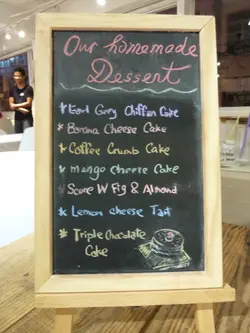 Our homemade
Dessert
* Earl Grey Chiffon Cake
* Banana Cheese Cake
* Coffee Crumb Cake
* mango cheese Cake
* Scone W Fig & Almond
* Lemon cheese Tart
* Triple Chocolate
Cake